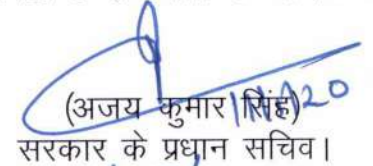 (अजय कुमार सिंह)
सरकार के प्रधान सचिव।